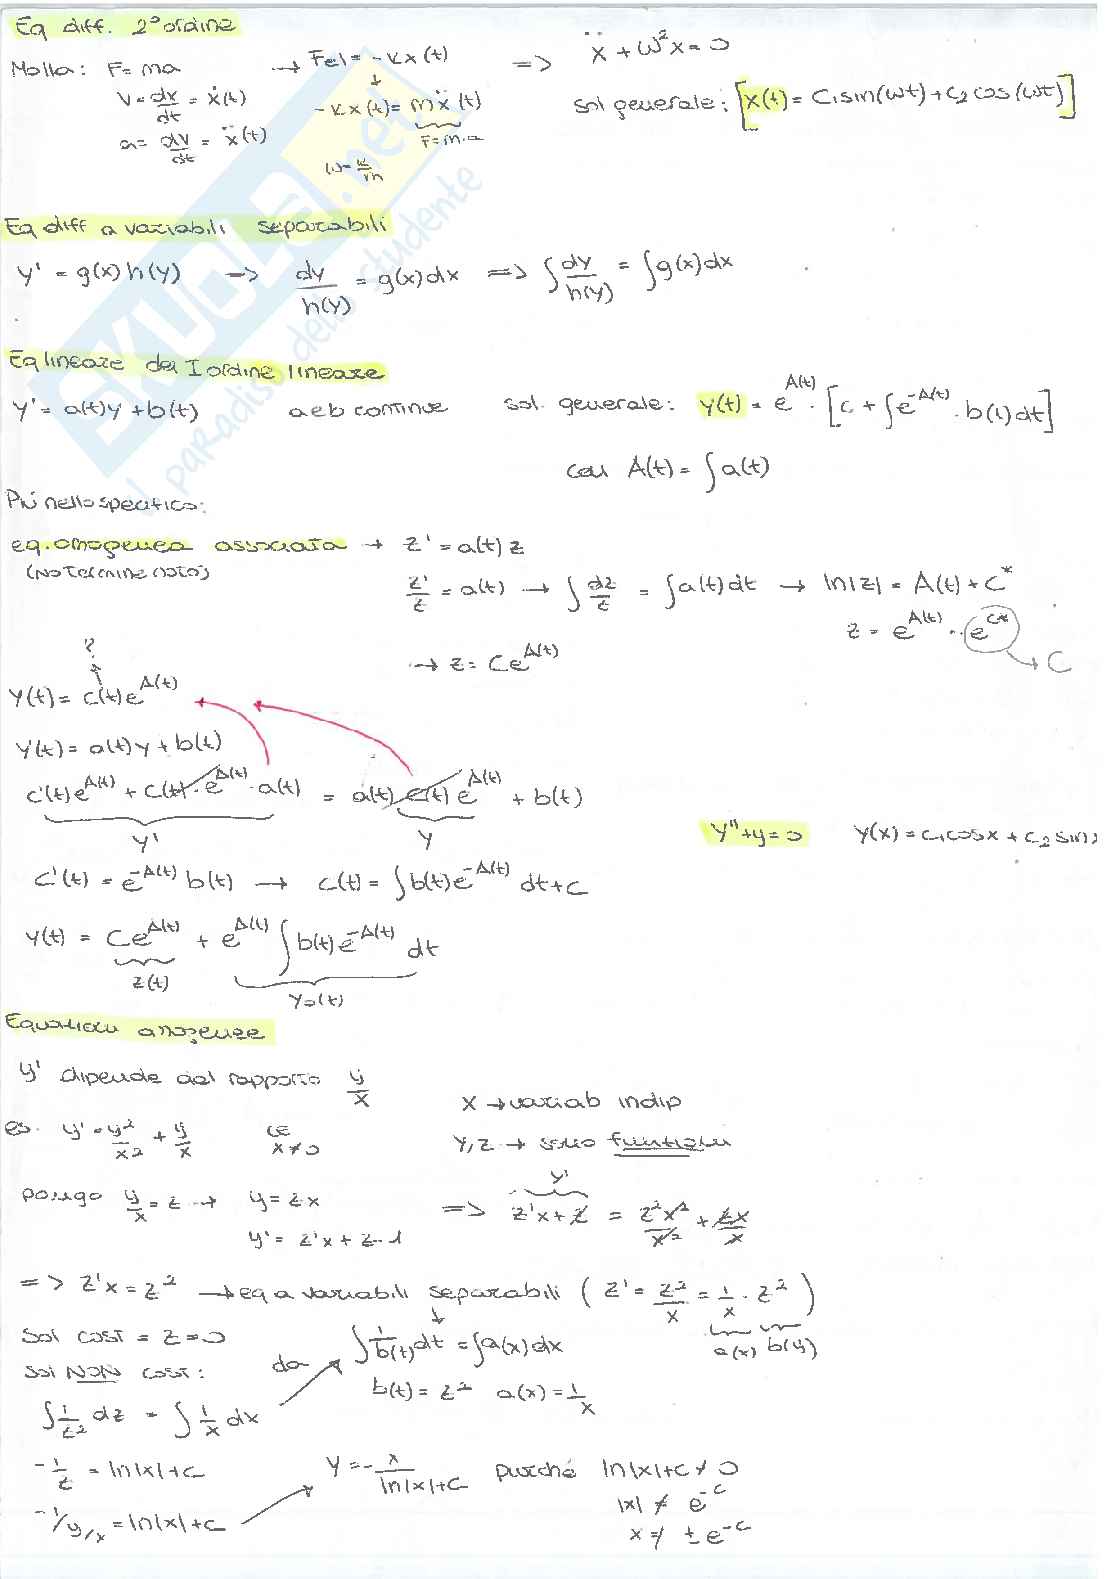 Eq diff. 2° ordine
Molla: F = ma → Fel = -kx(t) => ẍ + ω²x = 0
v = dx/dt = ẋ(t) -kx(t) = mẍ(t) sol generale: [x(t) = C₁sin(ωt) + C₂cos(ωt)]
a = dv/dt = ẍ(t) F = m·a
ω = k/m
Eq diff a variabili separabili
y' = g(x)h(y) → dy/h(y) = g(x)dx => ∫dy/h(y) = ∫g(x)dx
Eq lineare del I ordine lineare
y' = a(t)y + b(t) a e b continue sol. generale: y(t) = e^A(t) · [c + ∫e^-A(t) · b(t)dt]
con A(t) = ∫a(t)
Più nello specifico:
eq. omogenea associata → z' = a(t)z
(No termine noto)
z'/z = a(t) → ∫dz/z = ∫a(t)dt → ln|z| = A(t) + C*
z = e^A(t) · e^C*
→ z = Ce^A(t) → C
?
y(t) = c(t)e^A(t)
y'(t) = a(t)y + b(t)
c'(t)e^A(t) + c(t)·e^A(t)·a(t) = a(t)c(t)e^A(t) + b(t)
y' y
y"+y=0 y(x) = c₁cosx + c₂sin
c'(t) = e^-A(t) b(t) → c(t) = ∫b(t)e^-A(t) dt + c
y(t) = Ce^A(t) + e^A(t) ∫b(t)e^-A(t) dt
z(t) y₀(t)
Equazioni omogenee
y' dipende dal rapporto y/x
x → variab indip
es. y' = y²/x² + y/x CE x≠0
y, z → sono funzioni
pongo y/x = z → y = zx => z'x + z = z²x²/x² + zx/x
y'
y' = z'x + z·1
=> z'x = z² → eq a variabili separabili (z' = z²/x = 1/x · z²)
a(x) b(y)
Sol cost = z=0
da ∫1/b(t) dt = ∫a(x)dx
sol NON cost:
b(t) = z² a(x) = 1/x
∫1/z² dz = ∫1/x dx
-1/z = ln|x|+c y = -x/ln|x|+c purché ln|x|+c ≠ 0
|x| ≠ e^-c
-1/y/x = ln|x|+c
x ≠ ±e^-c
SKUOLA.net
il paradiso dello studente